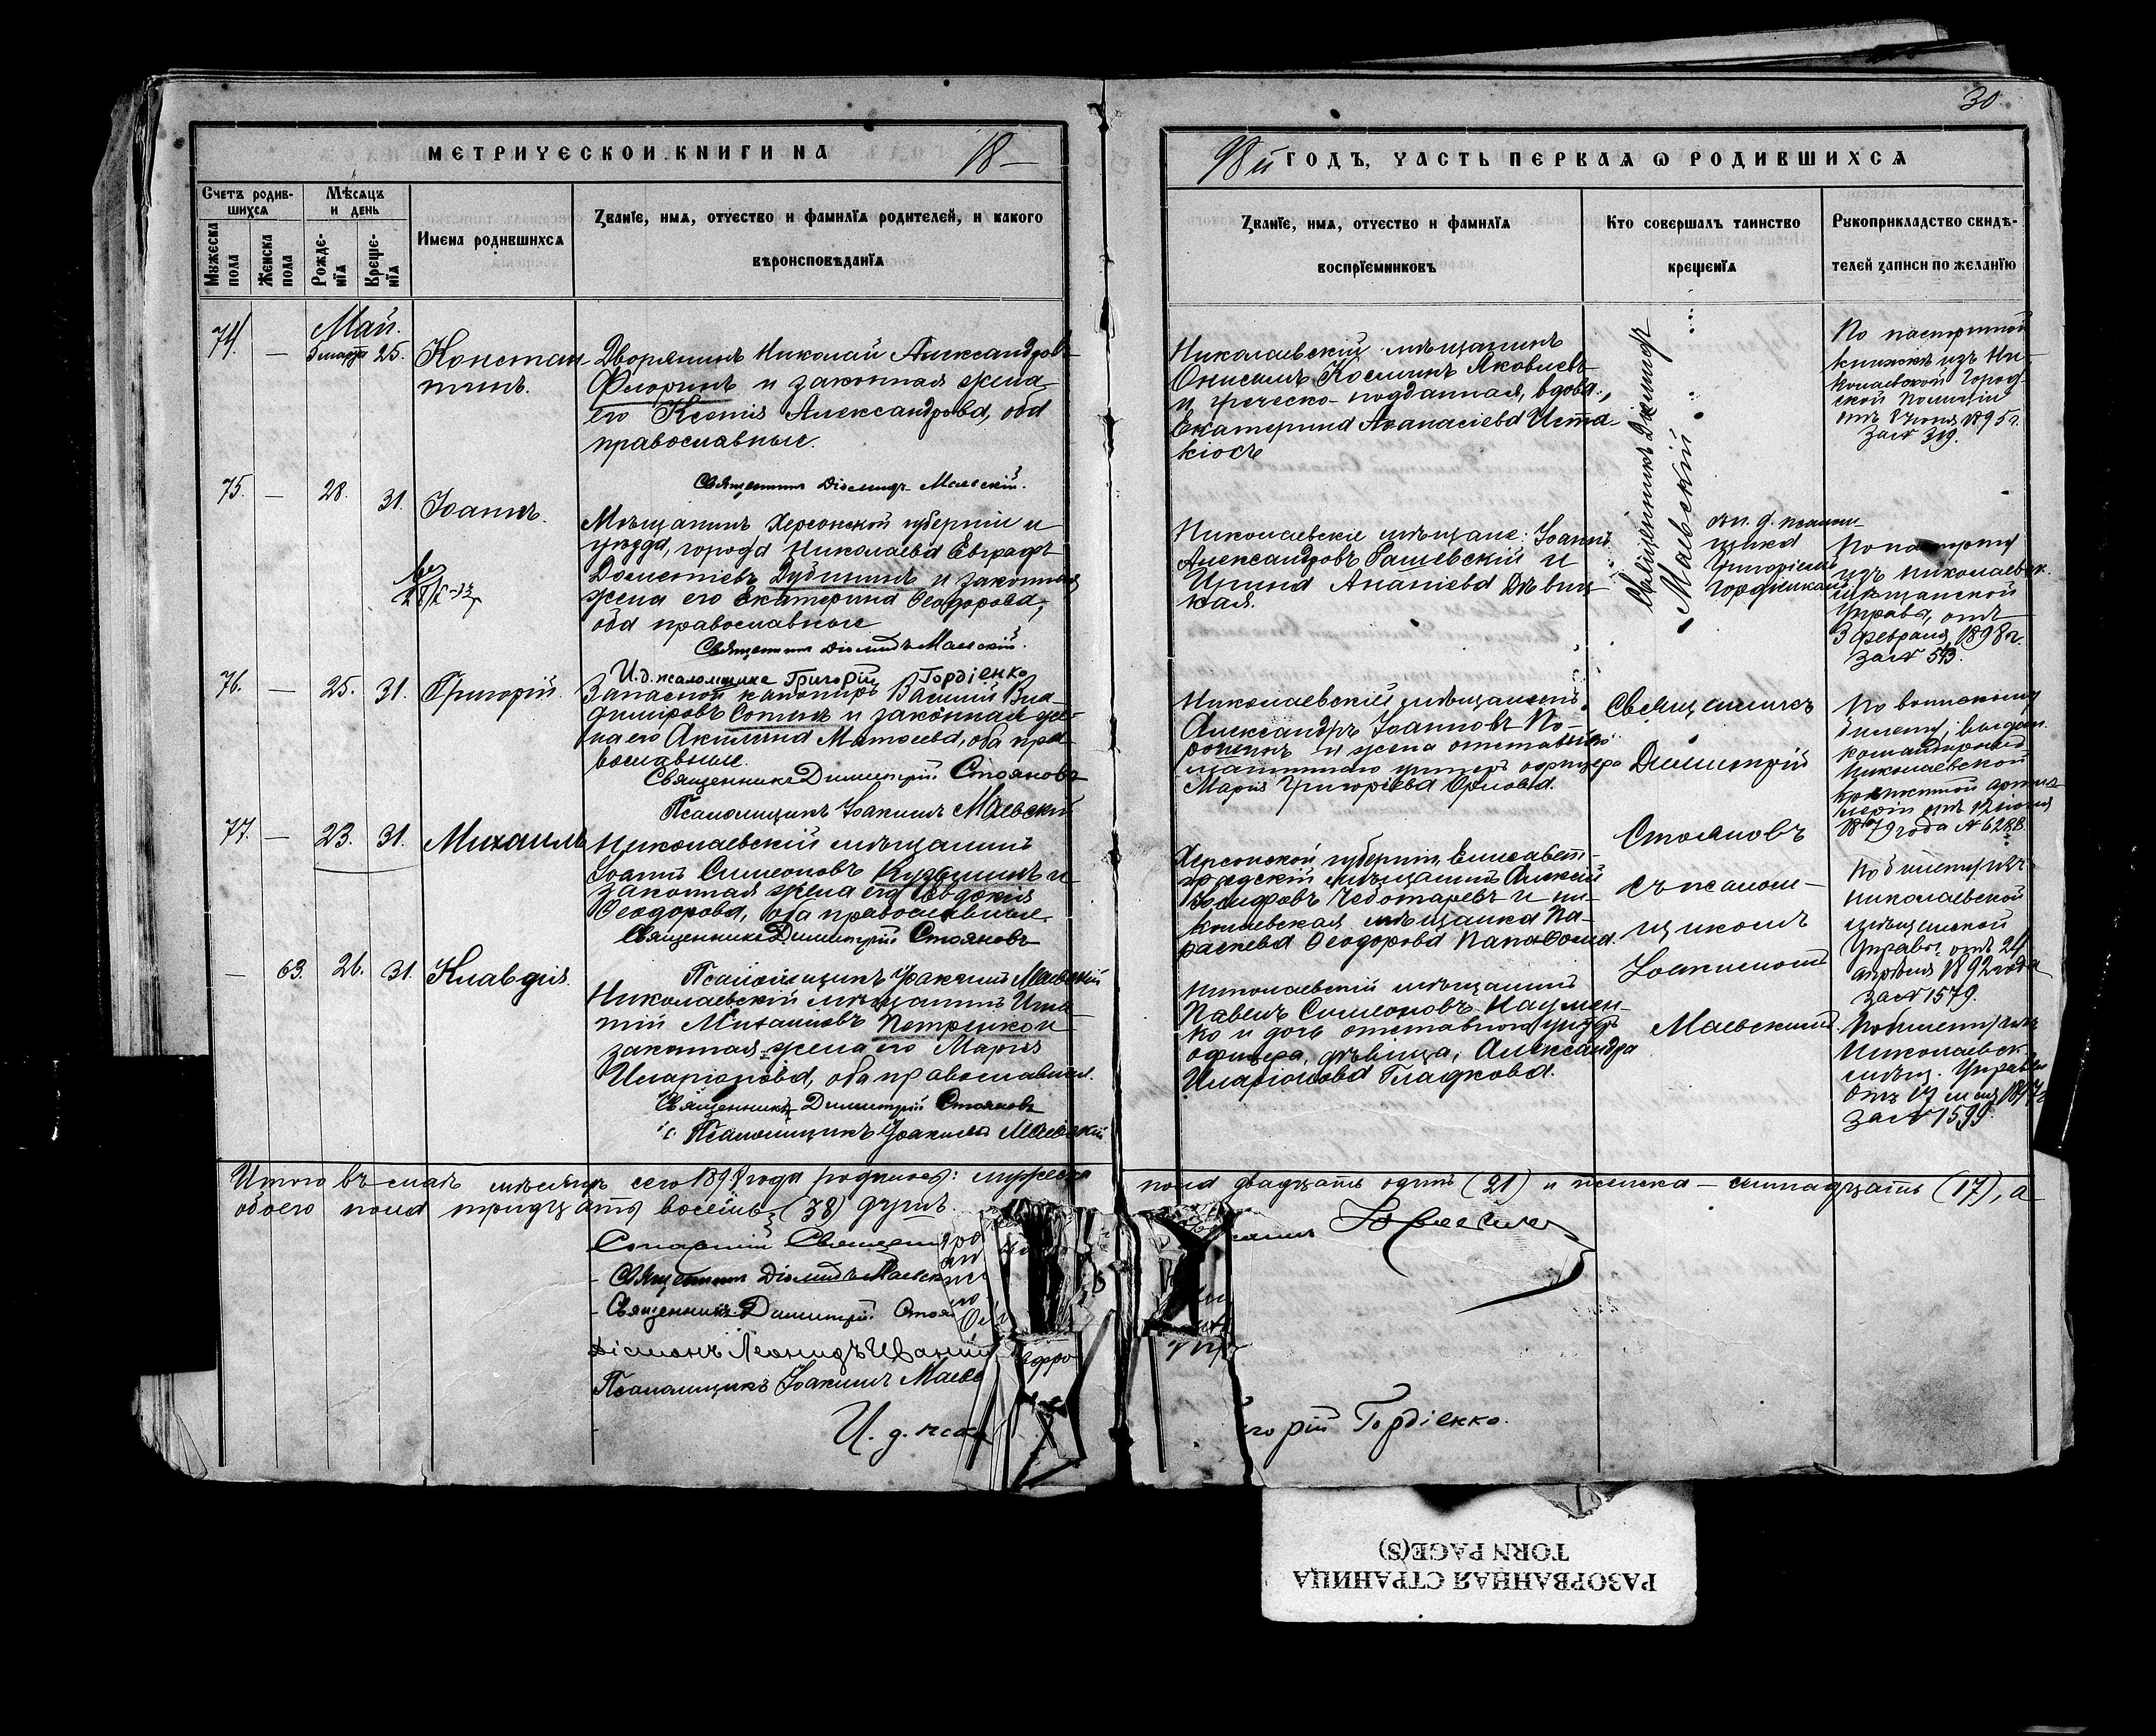 30
МЕТРИЧЕСКОЙ КНИГИ НА 18—
98й ГОДЪ, ЧАСТЬ ПЕРВАЯ Ѡ РОДИВШИХСЯ
Счетъ родив-
шихся
Мѣсяцъ
и день
Мужеска
пола
Женска
пола
Рожде-
нїя
Креще-
нїя
Имена родившихся
Званїе, имя, отчество и фамилїя родителей, и какого
вѣроисповѣданїя
Званїе, имя, отчество и фамилїя
воспрїемниковъ
Кто совершалъ таинство
крещенїя
Рукоприкладство свидѣ-
телей записи по желанїю
Май.
74. — 5 марта 25. Констан-
тинъ.
Дворянинъ Николай Александровъ
Флоринъ и законная жена
его Ксенія Александрова, оба
православные.
Священникъ Діомидъ Маевскій.
Николаевскій мѣщанинъ
Онисимъ Косминъ Яковлевъ
и греческо-подданная, вдова,
Екатерина Аѳанасіева Иста-
кіосъ
Священникъ Діомидъ
Маевскій
По паспортной
книжкѣ изъ Ни-
колаевской Город-
ской Полиціи
отъ 8 Іюня 1895 г.
за № 319.
75. — 28. 31. Іоаннъ.
Мѣщанинъ Херсонской губерніи и
уѣзда, города Николаева Евграфъ
Дометіевъ Дубининъ и законная
жена его Екатерина Ѳеодорова,
оба православные
Священникъ Діомидъ Маевскій.
И.д. псаломщика Григорій Гордіенко
Николаевскіе мѣщане: Іоаннъ
Александровъ Рашевскій и
Ирина Ананіева Дѣвиц-
кая.
и. д. псалом-
щика
Григоріемъ
Гордіенкомъ
По паспорту
изъ Николаевск.
мѣщанской
Управы, отъ
3 февраля 1898 г.
за № 543.
76. — 25. 31. Григорій.
Запасной канониръ Василій Вла-
диміровъ Сотинъ и законная же-
на его Акилина Матѳеева, оба пра-
вославные.
Священникъ Димитрій Стояновъ
Псаломщикъ Іоакимъ Маевскій
Николаевскій мѣщанинъ
Александръ Іоанновъ По-
и жена отставного
унтеръ офицера
Марія Григоріева Орлова.
Священникъ
Димитрій
Стояновъ
съ псалом-
щикомъ
Іоакимомъ
Маевскимъ.
По воинскому
билету, выдан.
командиромъ
Николаевской
крѣпостной артил-
леріи отъ 12 іюня
1879 года № 6288.
77. — 23. 31. Михаилъ
Николаевскій мѣщанинъ
Іоаннъ Симеоновъ и
законная жена его Евдокія
Ѳеодорова, оба православные.
Священникъ Димитрій Стояновъ
Псаломщикъ Іоакимъ Маевскій
Херсонской губерніи, Елисавет-
градскій мѣщанинъ Алексій
Чеботаревъ и ни-
колаевская мѣщанка Па-
раскева Ѳеодорова
По билету изъ
Николаевской
мѣщанской
Управы отъ 24
апрѣля 1892 года
за № 1579.
— 63. 26. 31. Клавдія.
Николаевскій мѣщанинъ Игна-
тій Михаиловъ Петренко и
законная жена его Марія
Иларіонова, оба православные.
Священникъ Димитрій Стояновъ
Псаломщикъ Іоакимъ Маевскій
Николаевскій мѣщанинъ
Павелъ Симеоновъ Наумен-
ко и дочь отставного унтеръ
офицера, дѣвица, Александра
Иларіонова Гладкова.
По билету изъ
Николаевск.
мѣщ. Управы
отъ 19 мая 1897 г.
за № 1599.
Итого въ маѣ мѣсяцѣ сего 1898 года родилось: мужеска пола двадцать одинъ (21) и женска — семнадцать (17), а
обоего пола тридцать восемь (38) душъ.
Священникъ Діомидъ Маевск
Священникъ Димитрій Стоя
Діаконъ Леонидъ
Псаломщикъ Іоакимъ Маевс
И. д. пса
горій Гордіенко.
РАЗОРВАННАЯ СТРАНИЦА
TORN PAGE(S)